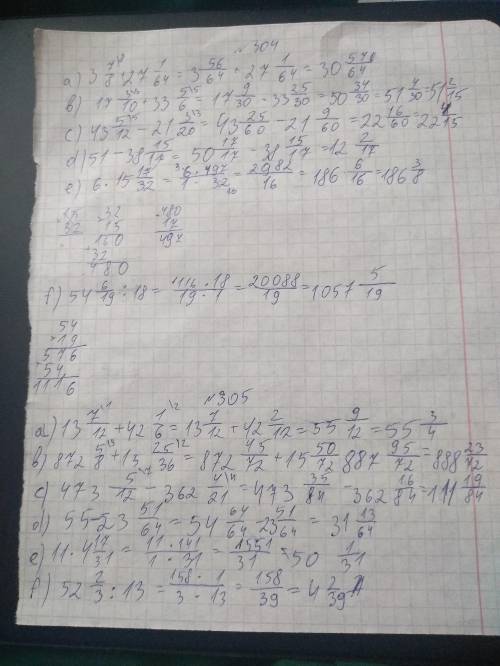 №304
a) 3 7/8 + 27 1/64 = 3 56/64 + 27 1/64 = 30 57/64
b) 17 3/10 + 33 5/6 = 17 9/30 + 33 25/30 = 50 34/30 = 51 4/30 = 51 2/15
c) 43 5/12 - 21 3/20 = 43 25/60 - 21 9/60 = 22 16/60 = 22 4/15
d) 51 - 38 15/17 = 50 17/17 - 38 15/17 = 12 2/17
e) 6 · 15 17/32 = 6 · 497 / 1 · 32 = 2982/16 = 186 6/16 = 186 3/8
32 480
15 17
160 497
32
480
f) 54 6/19 : 18 = 1116 · 18 / 19 · 1 = 20088/19 = 1057 5/19
54
19
516
54
1116
№305
a) 13 7/12 + 42 1/6 = 13 7/12 + 42 2/12 = 55 9/12 = 55 3/4
b) 872 5/8 + 15 25/36 = 872 45/72 + 15 50/72 887 95/72 = 888 23/72
c) 473 5/12 - 362 4/21 = 473 35/84 - 362 16/84 = 111 19/84
d) 55 - 23 51/64 = 54 64/64 - 23 51/64 = 31 13/64
e) 11 · 4 17/31 = 11 · 141 / 1 · 31 = 1551/31 = 50 1/31
f) 52 2/3 : 13 = 158 · 1 / 3 · 13 = 158/39 = 4 2/39